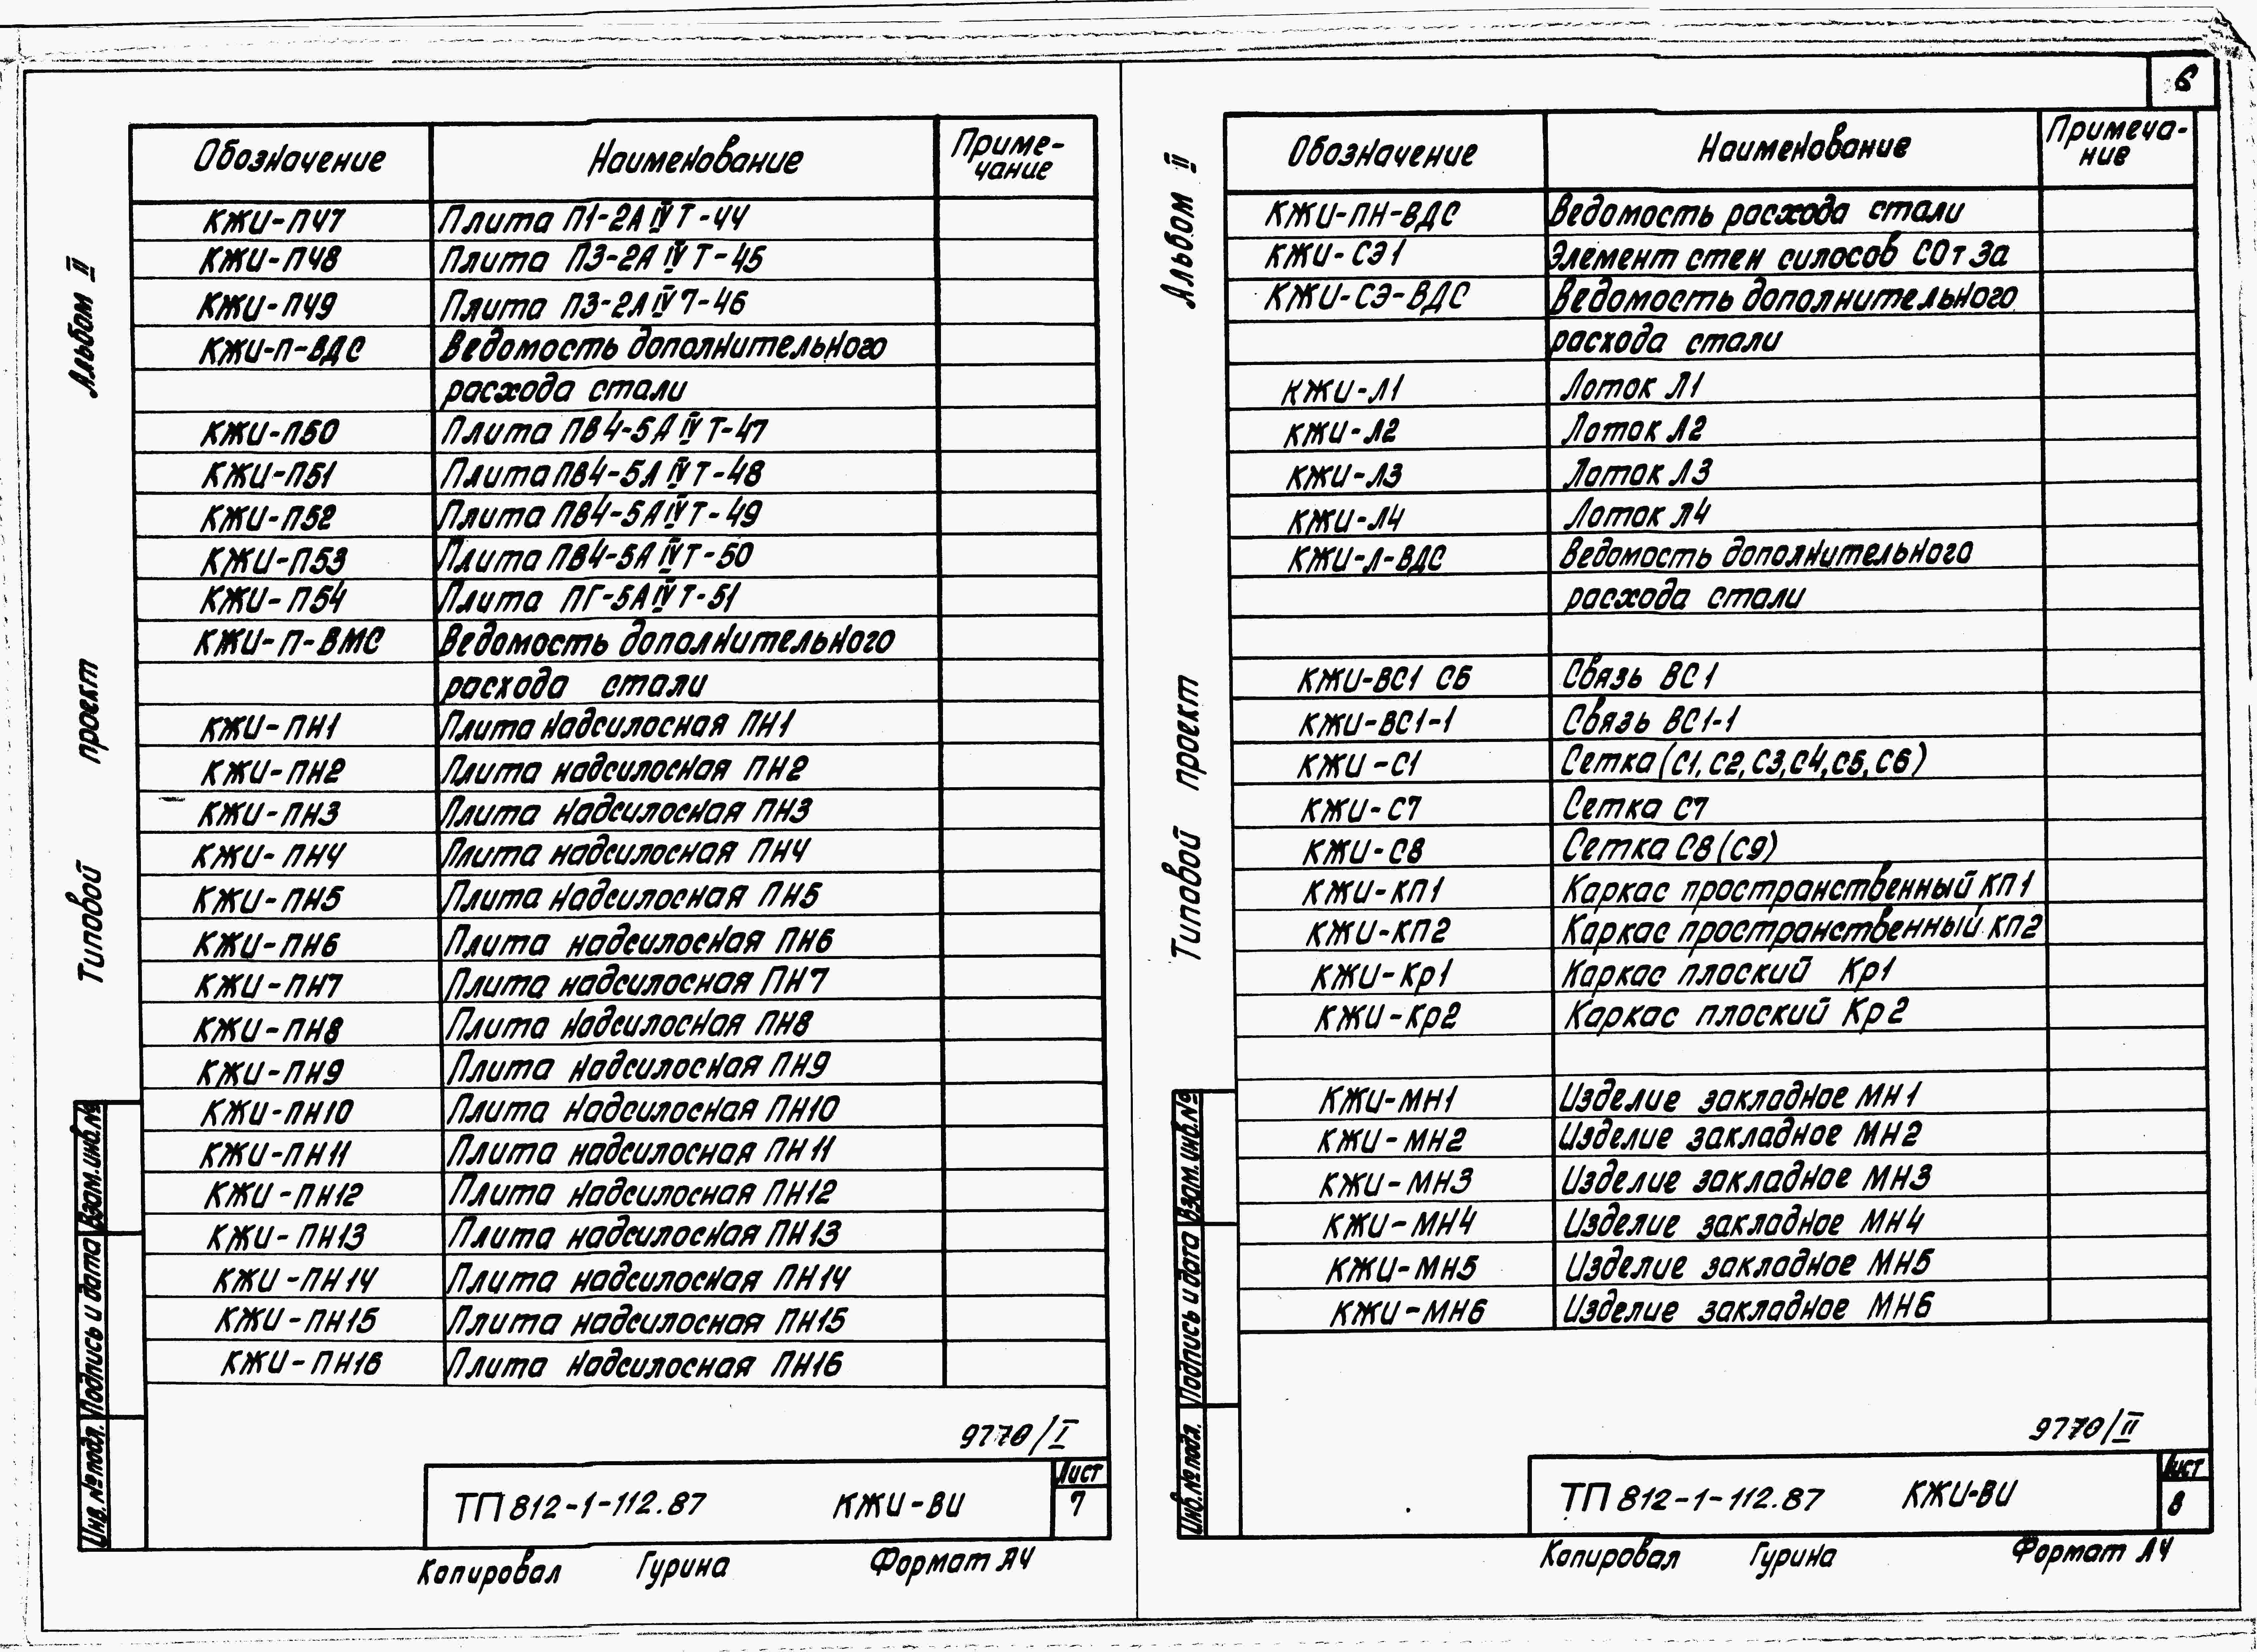 6
Альбом II
Типовой проект
Обозначение Наименование Приме-
чание
КЖИ-П47 Плита П1-2А IV Т-44
КЖИ-П48 Плита П3-2А IV Т-45
КЖИ-П49 Плита П3-2А IV Т-46
КЖИ-П-ВДС Ведомость дополнительного
расхода стали
КЖИ-П50 Плита ПВ4-5А IV Т-47
КЖИ-П51 Плита ПВ4-5А IV Т-48
КЖИ-П52 Плита ПВ4-5А IV Т-49
КЖИ-П53 Плита ПВ4-5А IV Т-50
КЖИ-П54 Плита ПГ-5А IV Т-51
КЖИ-П-ВМС Ведомость дополнительного
расхода стали
КЖИ-ПН1 Плита надсилосная ПН1
КЖИ-ПН2 Плита надсилосная ПН2
КЖИ-ПН3 Плита надсилосная ПН3
КЖИ-ПН4 Плита надсилосная ПН4
КЖИ-ПН5 Плита надсилосная ПН5
КЖИ-ПН6 Плита надсилосная ПН6
КЖИ-ПН7 Плита надсилосная ПН7
КЖИ-ПН8 Плита надсилосная ПН8
КЖИ-ПН9 Плита надсилосная ПН9
КЖИ-ПН10 Плита надсилосная ПН10
КЖИ-ПН11 Плита надсилосная ПН11
КЖИ-ПН12 Плита надсилосная ПН12
КЖИ-ПН13 Плита надсилосная ПН13
КЖИ-ПН14 Плита надсилосная ПН14
КЖИ-ПН15 Плита надсилосная ПН15
КЖИ-ПН16 Плита надсилосная ПН16
Взам.инв.№
Подпись и дата
Инв.№ подл.
9770/I
ТП 812-1-112.87 КЖИ-ВИ
Лист
7
Копировал Гурина Формат А4
Альбом II
Типовой проект
Обозначение Наименование Примеча-
ние
КЖИ-ПН-ВДС Ведомость расхода стали
КЖИ-СЭ1 Элемент стен силосов СОт3а
КЖИ-СЭ-ВДС Ведомость дополнительного
расхода стали
КЖИ-Л1 Лоток Л1
КЖИ-Л2 Лоток Л2
КЖИ-Л3 Лоток Л3
КЖИ-Л4 Лоток Л4
КЖИ-Л-ВДС Ведомость дополнительного
расхода стали
КЖИ-ВС1 СБ Связь ВС1
КЖИ-ВС1-1 Связь ВС1-1
КЖИ-С1 Сетка (С1, С2, С3, С4, С5, С6)
КЖИ-С7 Сетка С7
КЖИ-С8 Сетка С8 (С9)
КЖИ-КП1 Каркас пространственный КП1
КЖИ-КП2 Каркас пространственный КП2
КЖИ-Кр1 Каркас плоский Кр1
КЖИ-Кр2 Каркас плоский Кр2
КЖИ-МН1 Изделие закладное МН1
КЖИ-МН2 Изделие закладное МН2
КЖИ-МН3 Изделие закладное МН3
КЖИ-МН4 Изделие закладное МН4
КЖИ-МН5 Изделие закладное МН5
КЖИ-МН6 Изделие закладное МН6
Взам.инв.№
Подпись и дата
Инв.№ подл.
9770/II
ТП 812-1-112.87 КЖИ-ВИ
Лист
8
Копировал Гурина Формат А4